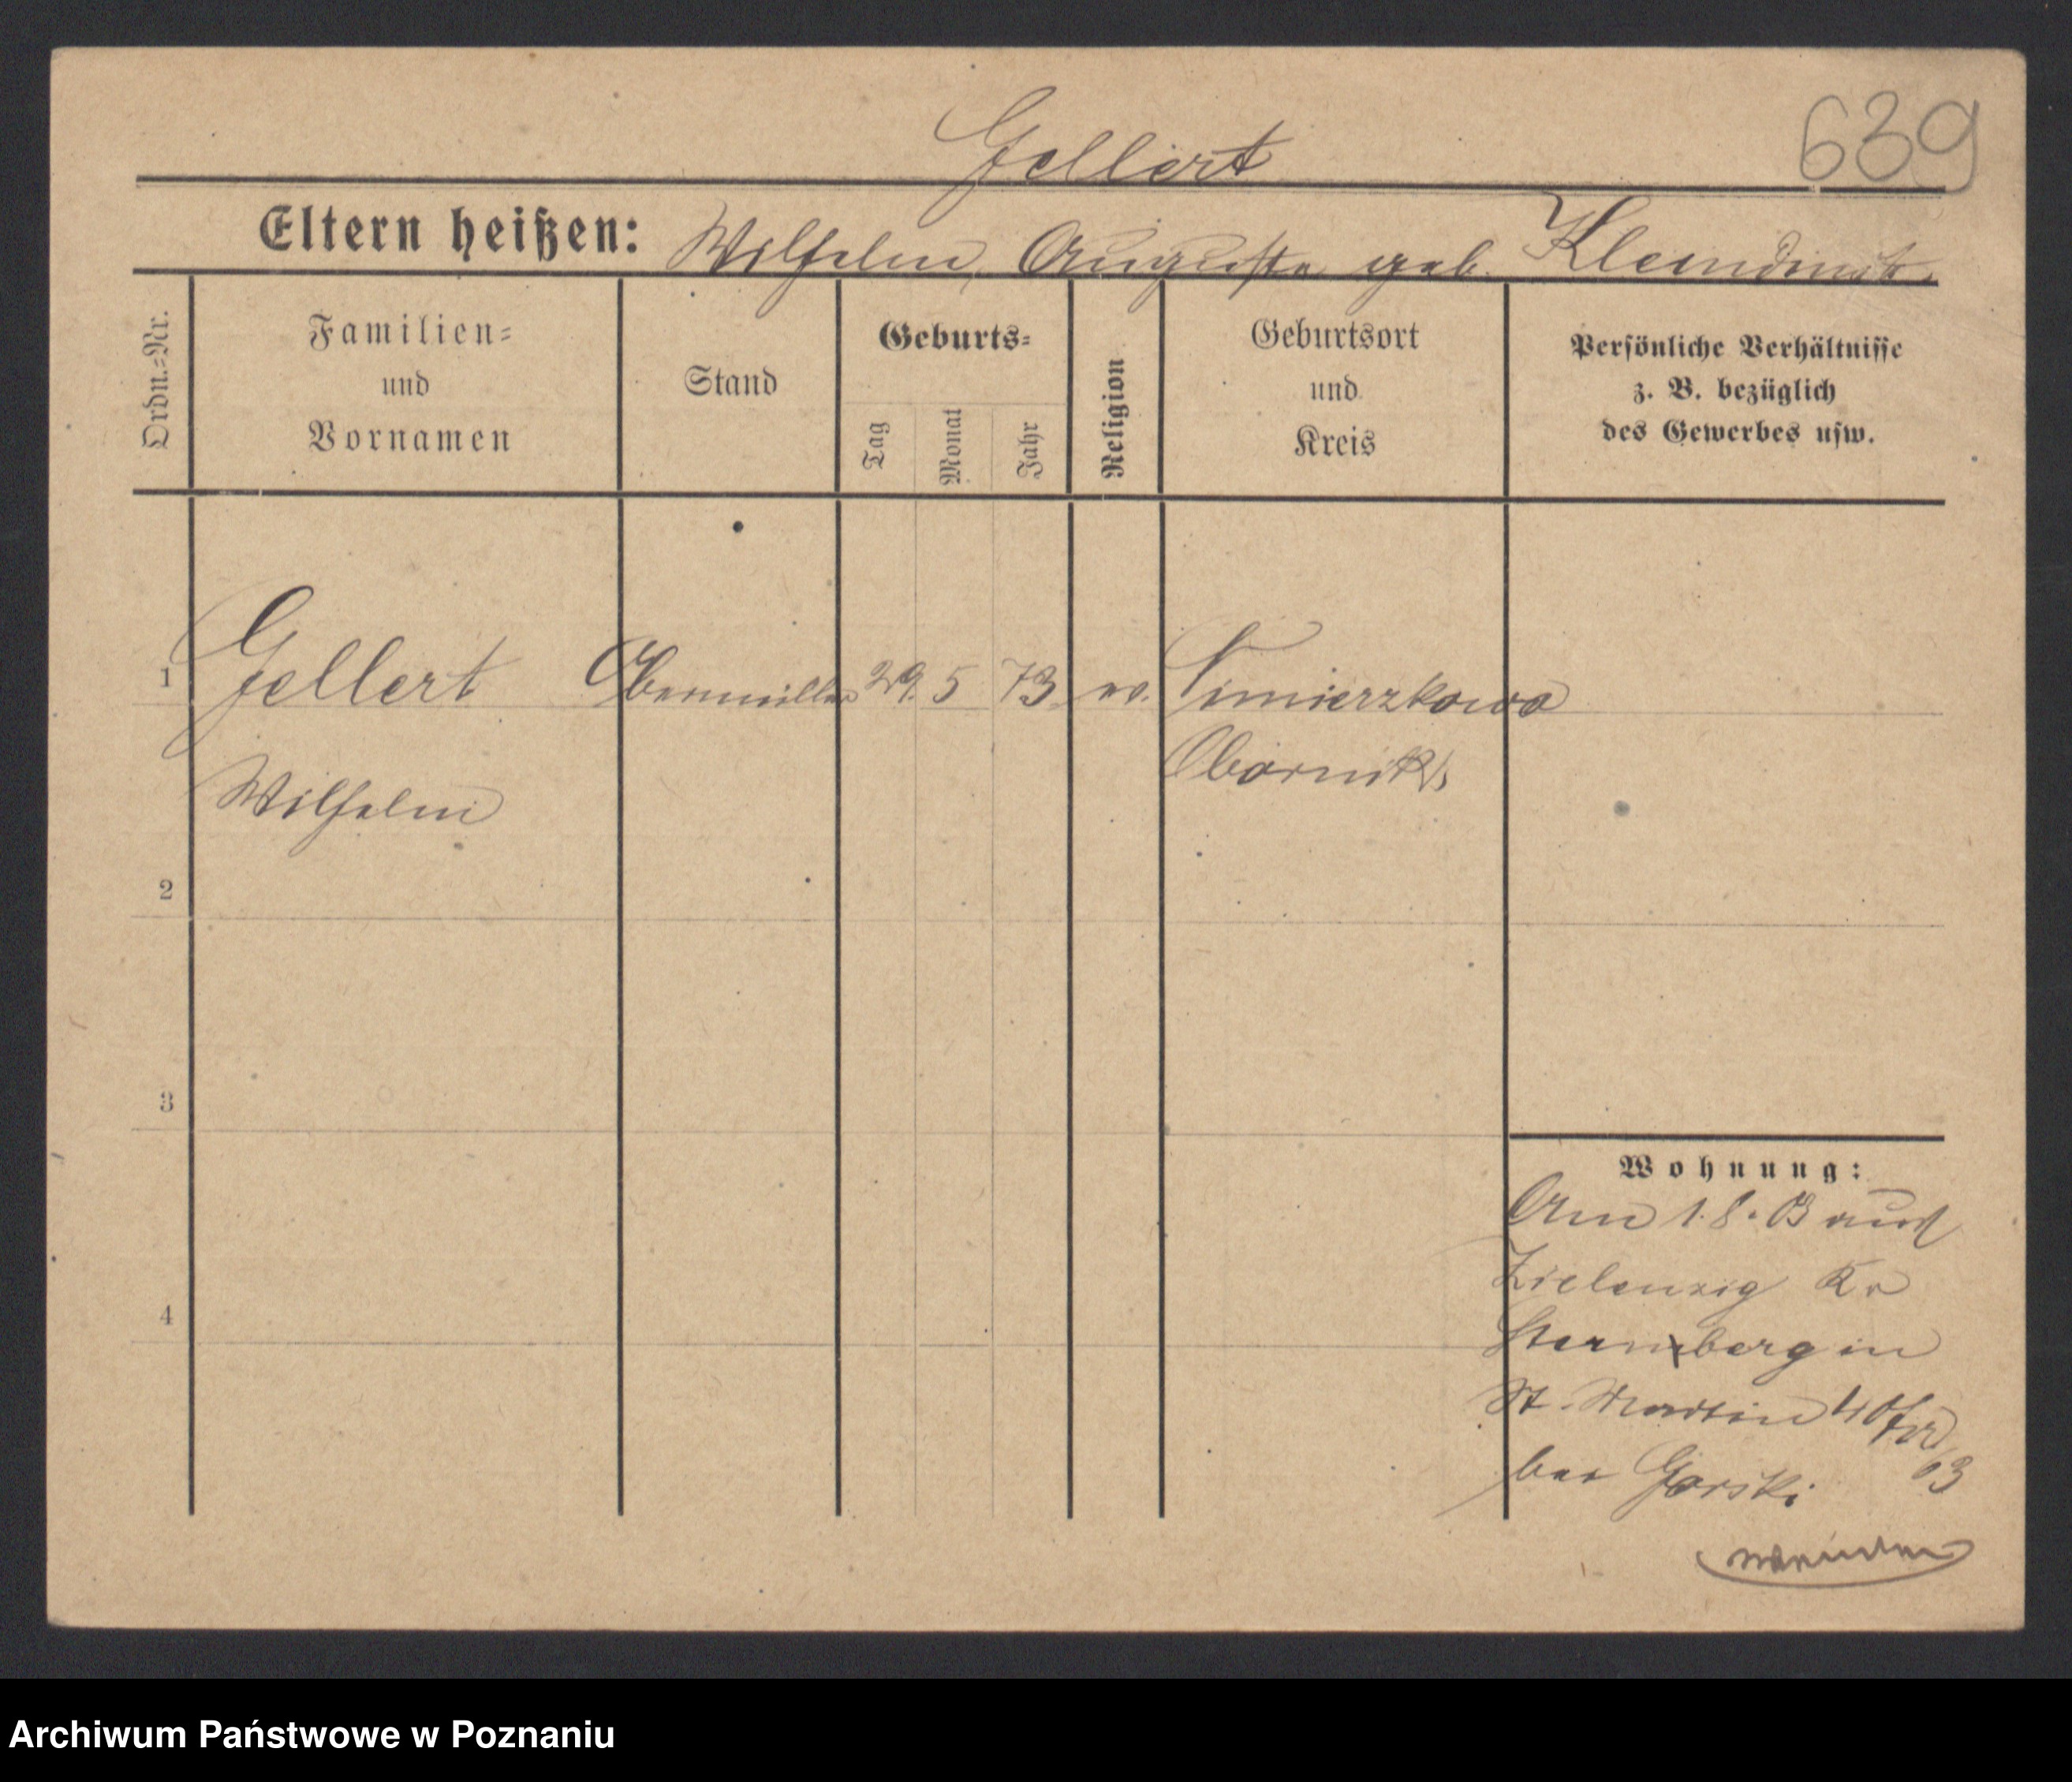 Gellert
639
Eltern heißen: Wilhelm, Auguste geb.
Ordn.-Nr.
Familien-
und
Vornamen
Stand
Geburts-
Tag
Monat
Jahr
Religion
Geburtsort
und
Kreis
Persönliche Verhältnisse
z. B. bezüglich
des Gewerbes usw.
1 Gellert 29. 5 73
Obornik
Wilhelm
2
3
4
Wohnung:
Am 1.8. 03 aus
Zielenzig Kr
Sternberg in
St. Martin 40
bei Gorski
03
Archiwum Państwowe w Poznaniu